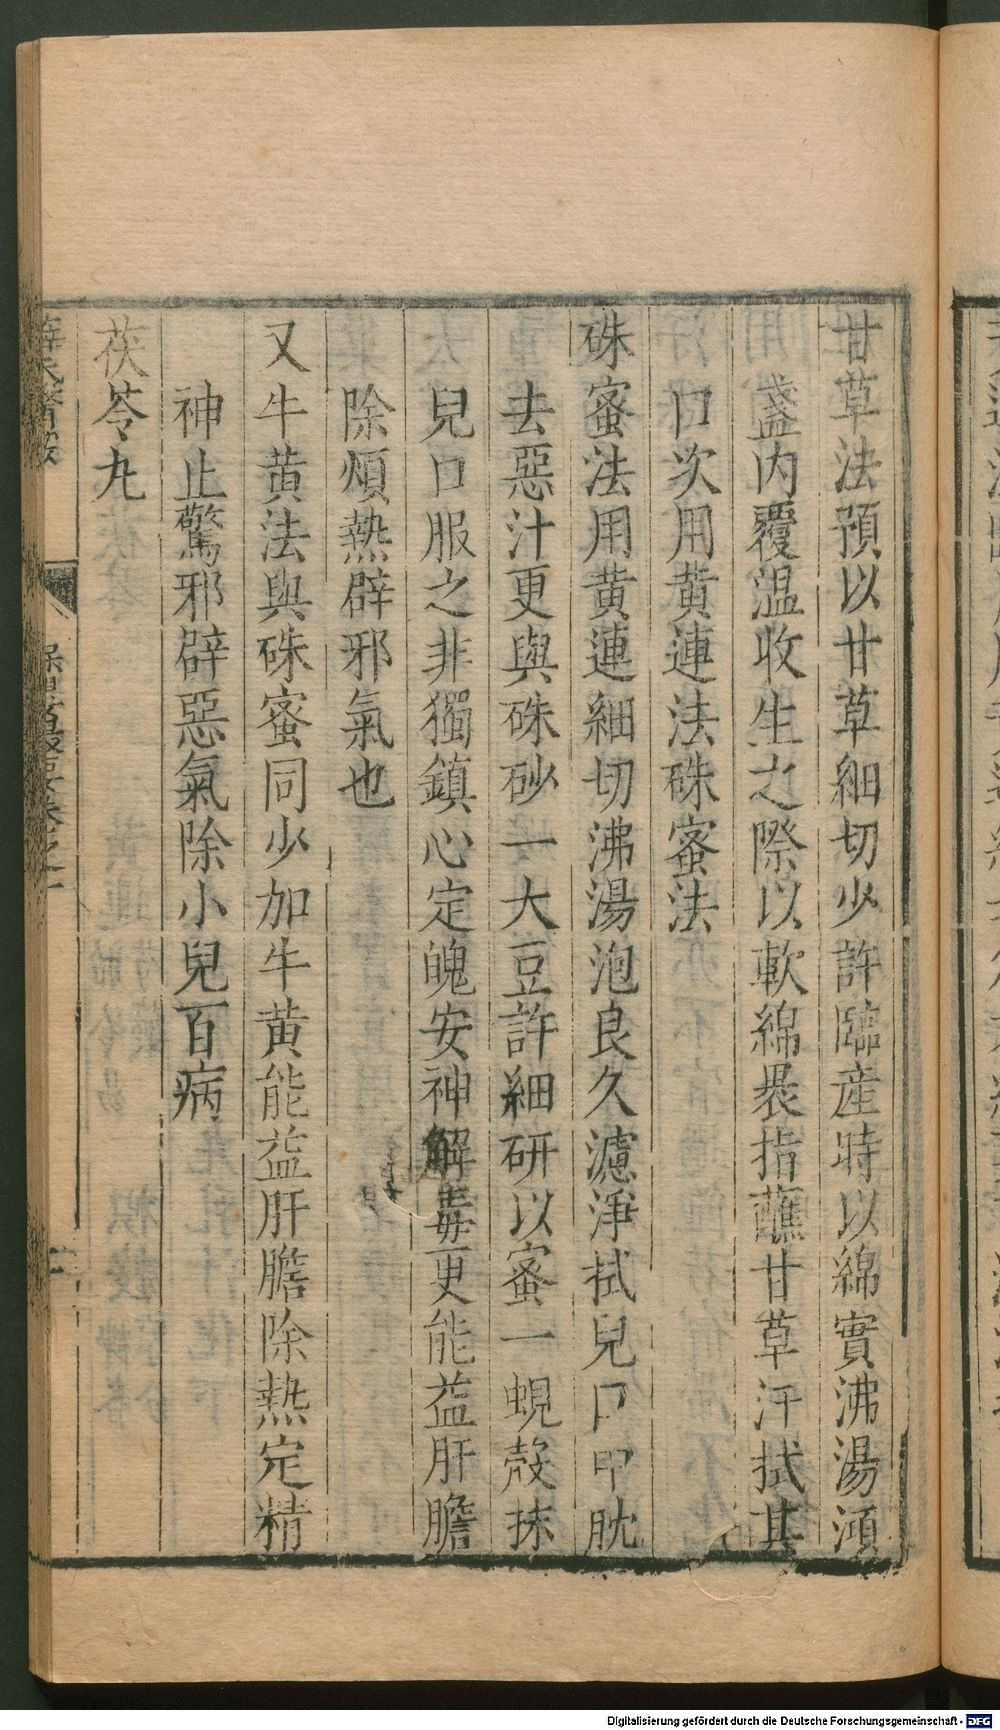 甘草法預以甘草細切少許臨産時以綿實沸湯澒
盞内覆温收生之際以軟綿褁指蘸甘草汁拭其
口次用黄連法硃蜜法
硃蜜法用黄連細切沸湯泡良久濾淨拭兒口中肬
去惡汁更與硃砂一大豆許細研以蜜一蜆殻抹
兒口服之非獨鎮心定魄安神解毒更能益肝膽
除煩熱辟邪氣也
又牛黄法與硃蜜同少加牛黄能益肝膽除熱定精
神止驚邪辟惡氣除小兒百病
茯苓丸
Digitalisierung gefördert durch die Deutsche Forschungsgemeinschaft - DFG